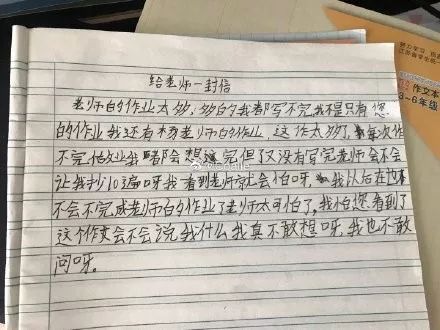 给老师一封信
老师的作业太够,够的我都写不完,我不是只有您
的作业我还有本老师的作业,这作太够了,每次作
不完作业我都会想写完但了又没有写完老师会不会
让我抄10遍呀我看到老师就会怕呀,我以后在也不
不会不完成老师的作业了老师太可怕了,我怕您看到了
这个作文会不会说我什么我真不敢想呀,我也不敢
问呀。
努力学习
作文本
3-6年级